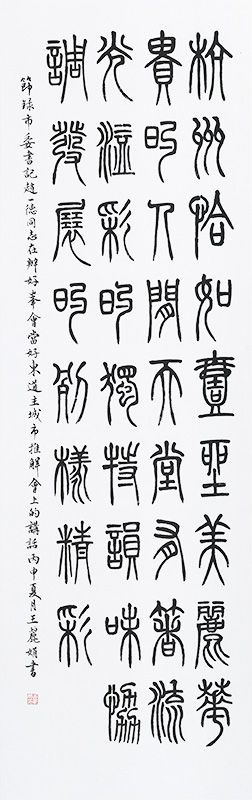 杭州恰如壹坐美麗華
貴旳人間天堂有著流
光溢彩旳獨特韻味協
調發展旳別樣精彩
節録市委書記趙一德同志在辦好峯會當好東道主城市推解會上的講話丙申夏月王麗娟書